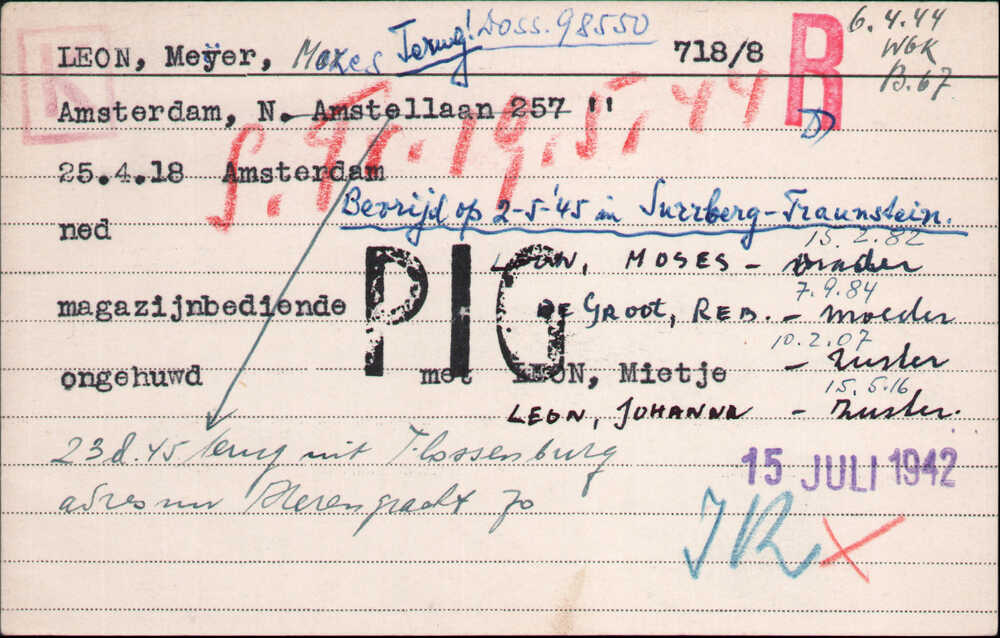 LEON, Meÿer, Mozes Terug! Doss. 98550 718/8 R 6.4.44
WGK
B.67
R
Amsterdam, N. Amstellaan 257 "
S. Tr. 19.5.44
25.4.18 Amsterdam
Bevrijd op 2-5-'45 in Surrberg-Traunstein.
ned
15.2.82
LEON, MOSES – vader
PIG
7.9.84
magazijnbediende DE GROOT, REB. – Moeder
10.2.07
ongehuwd met LEON, Mietje – Zuster
15.5.16
LEON, JOHANNA – Zuster.
terug uit Flossenburg
15 JULI 1942
adres nu Herengracht 70
JR X